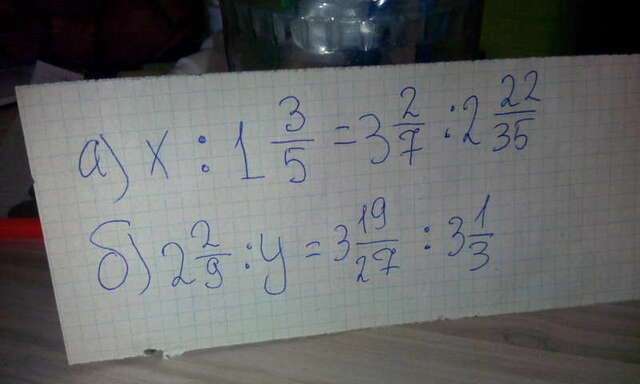 а) x : 1 3/5 = 3 2/7 : 2 22/35
б) 2 2/9 : y = 3 19/27 : 3 1/3